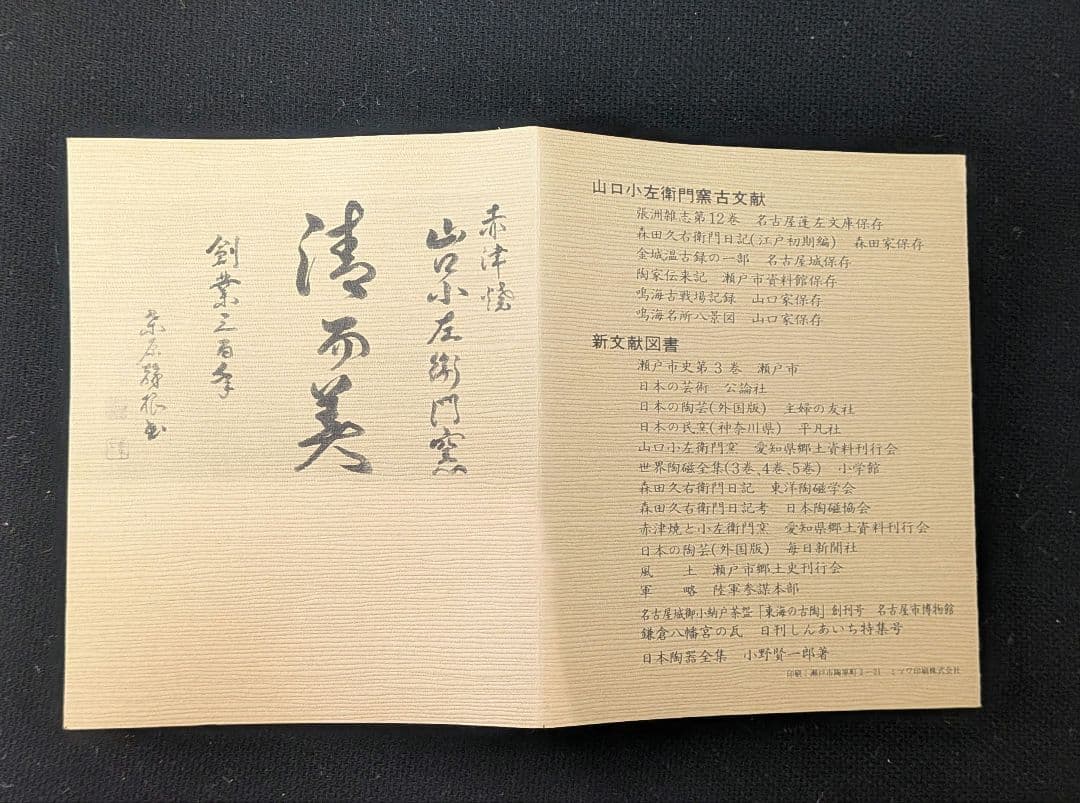 赤津焼
山口小左衛門窯
清而美
創業三百年
山口小左衛門窯古文献
張洲雑志第12巻 名古屋蓬左文庫保存
森田久右衛門日記(江戸初期編) 森田家保存
金城温古録の一部 名古屋城保存
陶家伝来記 瀬戸市資料館保存
鳴海古戦場記録 山口家保存
鳴海名所八景図 山口家保存
新文献図書
瀬戸市史第3巻 瀬戸市
日本の芸術 公論社
日本の陶芸(外国版) 主婦の友社
日本の民窯(神奈川県) 平凡社
山口小左衛門窯 愛知県郷土資料刊行会
世界陶磁全集(3巻、4巻、5巻) 小学館
森田久右衛門日記 東洋陶磁学会
森田久右衛門日記考 日本陶磁協会
赤津焼と小左衛門窯 愛知県郷土資料刊行会
日本の陶芸(外国版) 毎日新聞社
風 土 瀬戸市郷土史刊行会
軍 略 陸軍参謀本部
名古屋城御小納戸茶盌「東海の古陶」創刊号 名古屋市博物館
鎌倉八幡宮の瓦 日刊しんあいち特集号
日本陶器全集 小野賢一郎著
印刷 瀬戸市陶原町2-21 ミツワ印刷株式会社